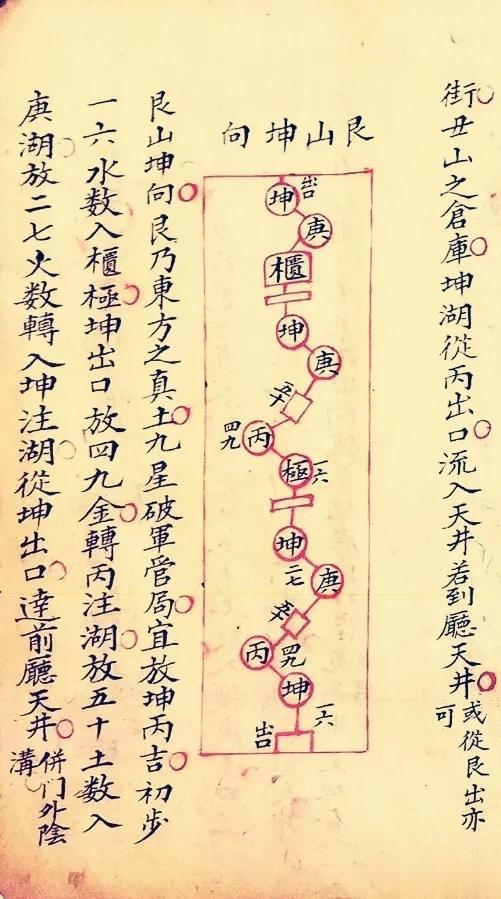 街丑山之倉庫坤湖從丙出口流入天井若到廳天井或從艮出亦可
艮山坤向
出口
坤
庚
櫃
坤
庚
五十
丙
四九
極
一六
坤
二七
庚
五十
丙
四九
坤
一六
出口
艮山坤向艮乃東方之真土九星破軍管局宜放坤丙吉初步
一六水数入櫃極坤出口放四九金轉丙注湖放五十土数入
庚湖放二七火数轉入坤注湖從坤出口達前廳天井併门外陰溝